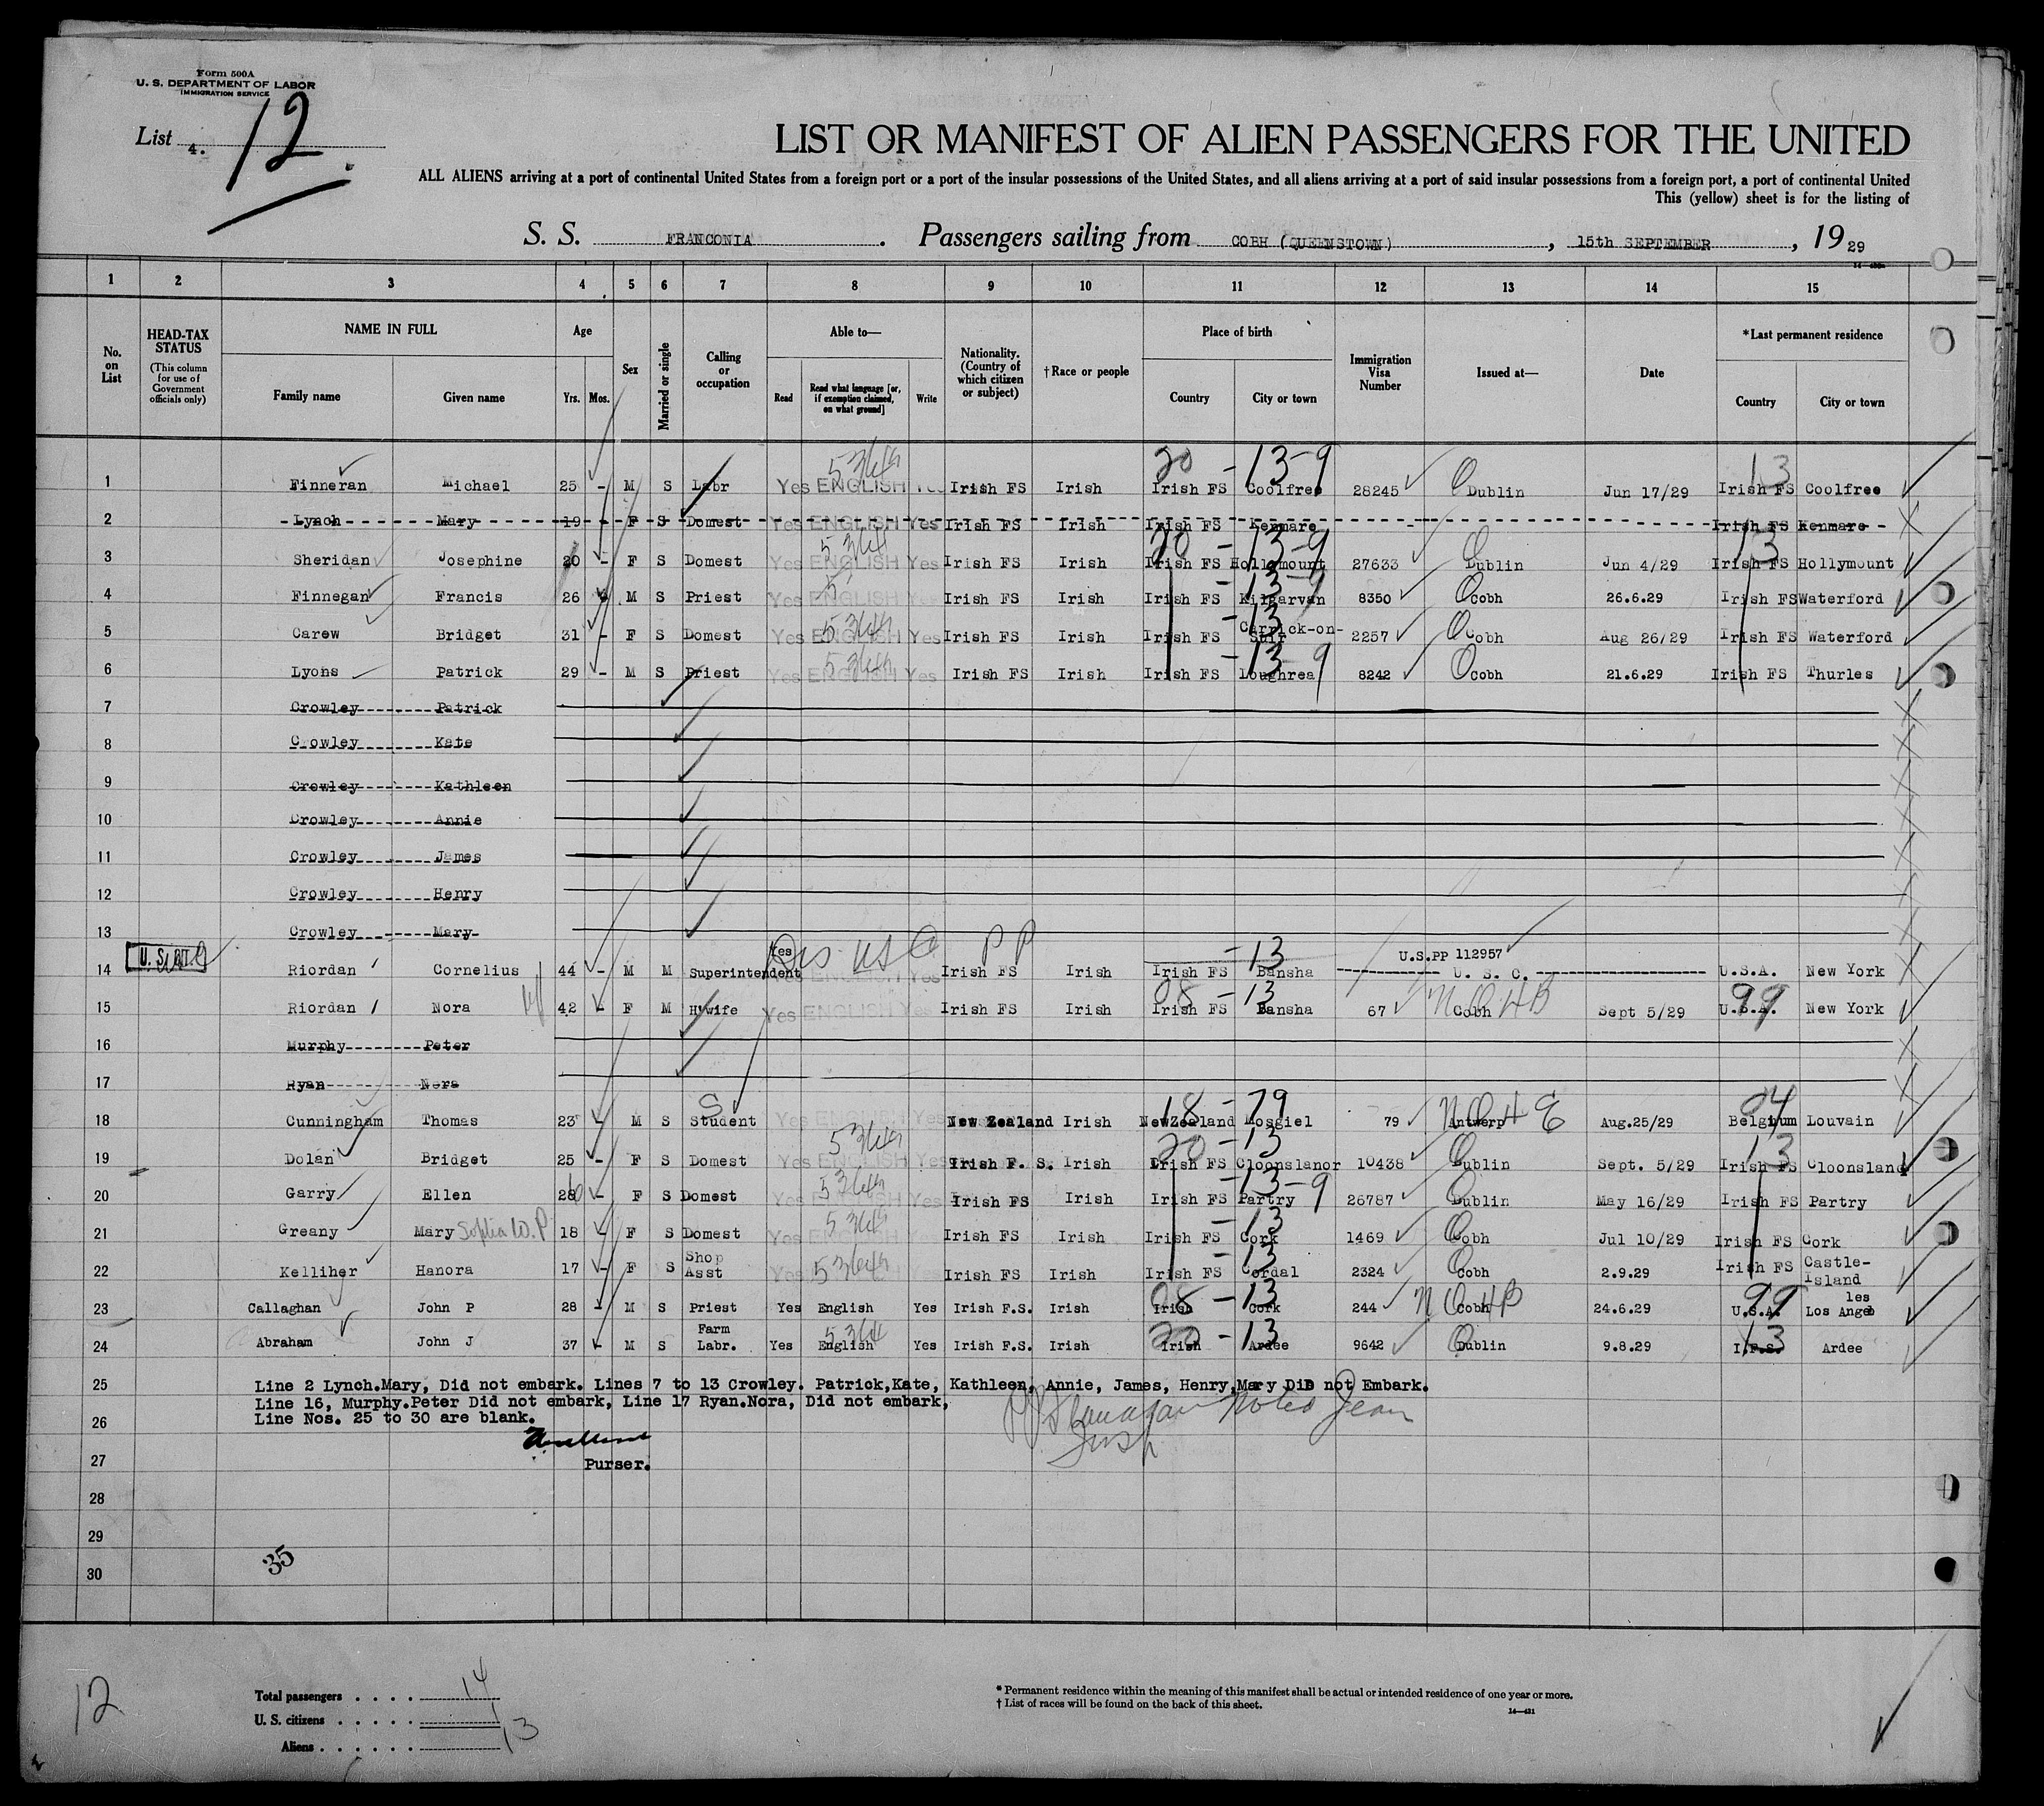 Form 500A
U. S. DEPARTMENT OF LABOR
IMMIGRATION SERVICE
List 4. 12.
LIST OR MANIFEST OF ALIEN PASSENGERS FOR THE UNITED
ALL ALIENS arriving at a port of continental United States from a foreign port or a port of the insular possessions of the United States, and all aliens arriving at a port of said insular possessions from a foreign port, a port of continental United
This (yellow) sheet is for the listing of
S. S. FRANCONIA . Passengers sailing from COBH (QUEENSTOWN) , 15th SEPTEMBER , 19 29
1 2 3 4 5 6 7 8 9 10 11 12 13 14 15
No. on List
HEAD-TAX STATUS
(This column for use of Government officials only)
NAME IN FULL
Family name Given name
Age
Yrs. Mos.
Sex
Married or single
Calling or occupation
Able to—
Read Read what language [or, if exemption claimed, on what ground] Write
Nationality. (Country of which citizen or subject)
†Race or people
Place of birth
Country City or town
Immigration Visa Number
Issued at—
Date
*Last permanent residence
Country City or town
1 Finneran Michael 25 - M S Labr Yes ENGLISH Yes Irish FS Irish Irish FS Coolfree 28245 Dublin Jun 17/29 Irish FS Coolfree
5364 20 - 13-9 13
2 Lynch Mary 19 - F S Domest Yes ENGLISH Yes Irish FS Irish Irish FS Kenmare Irish FS Kenmare
3 Sheridan Josephine 20 - F S Domest Yes ENGLISH Yes Irish FS Irish Irish FS Hollymount 27633 Dublin Jun 4/29 Irish FS Hollymount
5364 20 - 13-9 13
4 Finnegan Francis 26 M S Priest Yes ENGLISH Irish FS Irish Irish FS Kilgarvan 8350 Cobh 26.6.29 Irish FS Waterford
- 13 9
5 Carew Bridget 31 - F S Domest Yes ENGLISH Yes Irish FS Irish Irish FS Carrick-on-Suir 2257 Cobh Aug 26/29 Irish FS Waterford
5364 - 13
6 Lyons Patrick 29 - M S Priest Yes ENGLISH Yes Irish FS Irish Irish FS Loughrea 8242 Cobh 21.6.29 Irish FS Thurles
5364 - 13-9
7 Crowley Patrick
8 Crowley Kate
9 Crowley Kathleen
10 Crowley Annie
11 Crowley James
12 Crowley Henry
13 Crowley Mary
U.S. CIT.
14 Riordan Cornelius 44 - M M Superintendent Yes ENGLISH Yes Irish FS Irish Irish FS Bansha U.S.PP 112957 U. S. C. U.S.A. New York
USC PP - 13
15 Riordan Nora 42 - F M H'wife Yes ENGLISH Yes Irish FS Irish Irish FS Bansha 67 Cobh Sept 5/29 U.S.A. New York
08 - 13 99
16 Murphy Peter
17 Ryan Nora
18 Cunningham Thomas 23 - M S Student Yes ENGLISH Yes New Zealand Irish NewZealand Mosgiel 79 Antwerp Aug.25/29 Belgium Louvain
18 - 79 04
19 Dolan Bridget 25 - F S Domest Yes ENGLISH Yes Irish F. S. Irish Irish FS Cloonslanor 10438 Dublin Sept. 5/29 Irish FS Cloonsland
5364 20 - 13 13
20 Garry Ellen 28 - F S Domest Yes ENGLISH Yes Irish FS Irish Irish FS Partry 26787 Dublin May 16/29 Irish FS Partry
5364 - 13-9
21 Greany Mary Sophia W.P 18 - F S Domest Yes ENGLISH Yes Irish FS Irish Irish FS Cork 1469 Cobh Jul 10/29 Irish FS Cork
5364 - 13
22 Kelliher Hanora 17 - F S Shop Asst Yes Irish FS Irish Irish FS Cordal 2324 Cobh 2.9.29 Irish FS Castle-Island
5364 - 13
23 Callaghan John P 28 - M S Priest Yes English Yes Irish F.S. Irish Irish Cork 244 Cobh 24.6.29 U.S.A. Los Angeles
08 - 13 99
24 Abraham John J 37 - M S Farm Labr. Yes English Yes Irish F.S. Irish Irish Ardee 9642 Dublin 9.8.29 I.F.S. Ardee
5364 20 - 13 13
25 Line 2 Lynch.Mary, Did not embark. Lines 7 to 13 Crowley. Patrick,Kate, Kathleen, Annie, James, Henry,Mary Did not Embark.
Line 16, Murphy.Peter Did not embark, Line 17 Ryan.Nora, Did not embark,
26 Line Nos. 25 to 30 are blank.
27 Purser.
28
29
30
35
12
Total passengers . . . . 14
U. S. citizens . . . . . 1
Aliens . . . . . . 13
* Permanent residence within the meaning of this manifest shall be actual or intended residence of one year or more.
† List of races will be found on the back of this sheet.
14—431